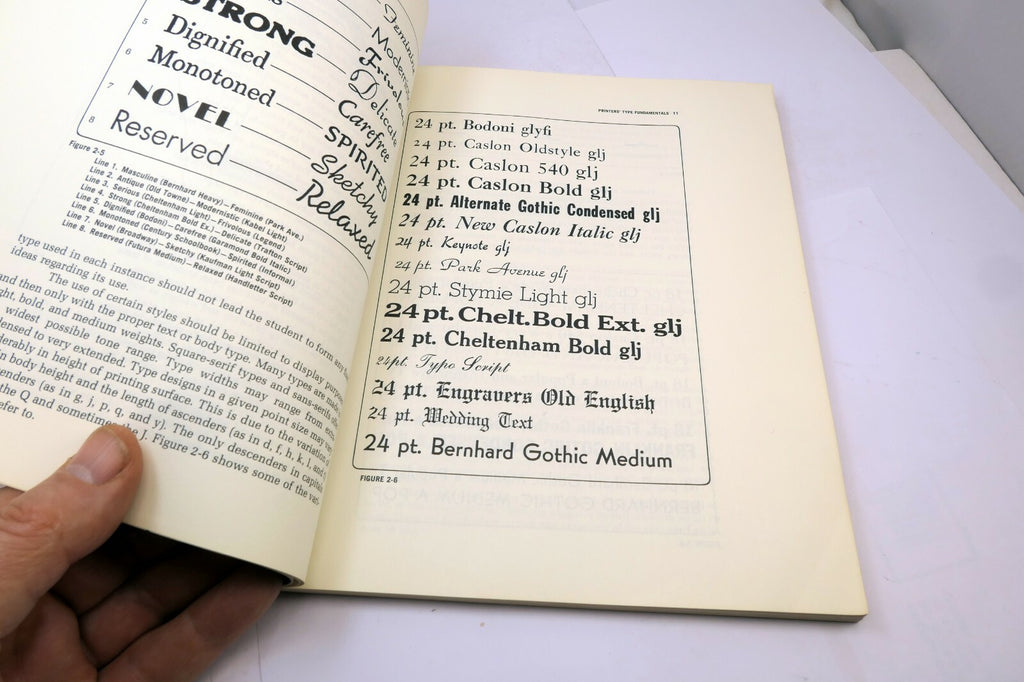 STRONG
Dignified
Monotoned
NOVEL
Reserved
Modern
Frivol
Delicate
Carefree
SPIRITED
Sketchy
Relaxed
5
6
7
8
Figure 2-5
Line 1. Masculine (Bernhard Heavy)—Feminine (Park Ave.)
Line 2. Antique (Old Towne)—Modernistic (Kabel Light)
Line 3. Serious (Cheltenham Light)—Frivolous (Legend)
Line 4. Strong (Cheltenham Bold Ex.)—Delicate (Trafton Script)
Line 5. Dignified (Bodoni)—Carefree (Garamond Bold Italic)
Line 6. Monotoned (Century Schoolbook)—Spirited (Informal)
Line 7. Novel (Broadway)—Sketchy (Kaufman Light Script)
Line 8. Reserved (Futura Medium)—Relaxed (Handletter Script)
type used in each instance should not lead the student to form any
ideas regarding its use.
The use of certain styles should be limited to display
and then only with the proper text or body type. Many types are made
bold, and medium weights. Square-serif types and sans-serifs
widest possible tone range. Type widths may range from
to very extended. Type designs in a given point size may
in height of printing surface. This is due to the variation
body height and the length of ascenders (as in d, f, h, k, l, and
(as in g, j, p, q, and y). The only descenders in capital
the Q and sometimes the J. Figure 2-6 shows some of the
refer to.
PRINTERS' TYPE FUNDAMENTALS 11
24 pt. Bodoni glyfi
24 pt. Caslon Oldstyle glj
24 pt. Caslon 540 glj
24 pt. Caslon Bold glj
24 pt. Alternate Gothic Condensed glj
24 pt. New Caslon Italic glj
24 pt. Keynote glj
24 pt. Park Avenue glj
24 pt. Stymie Light glj
24 pt. Chelt. Bold Ext. glj
24 pt. Cheltenham Bold glj
24 pt. Typo Script
24 pt. Engravers Old English
24 pt. Wedding Text
24 pt. Bernhard Gothic Medium
FIGURE 2-6